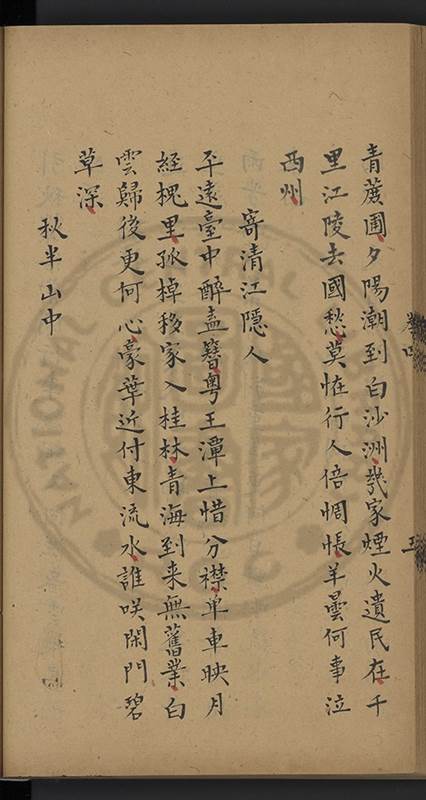 青蕪圃夕陽潮到白沙洲幾家煙火遺民在千
里江陵去國愁莫怪行人倍惆悵羊曇何事泣
西州
寄清江隱人
平遠臺中醉盍簪粵王潭上惜分襟單車映月
經槐里孤棹移家入桂林青海到来無舊業白
雲歸後更何心豪華近付東流水誰咲閑門碧
草深
秋半山中
卷四
五